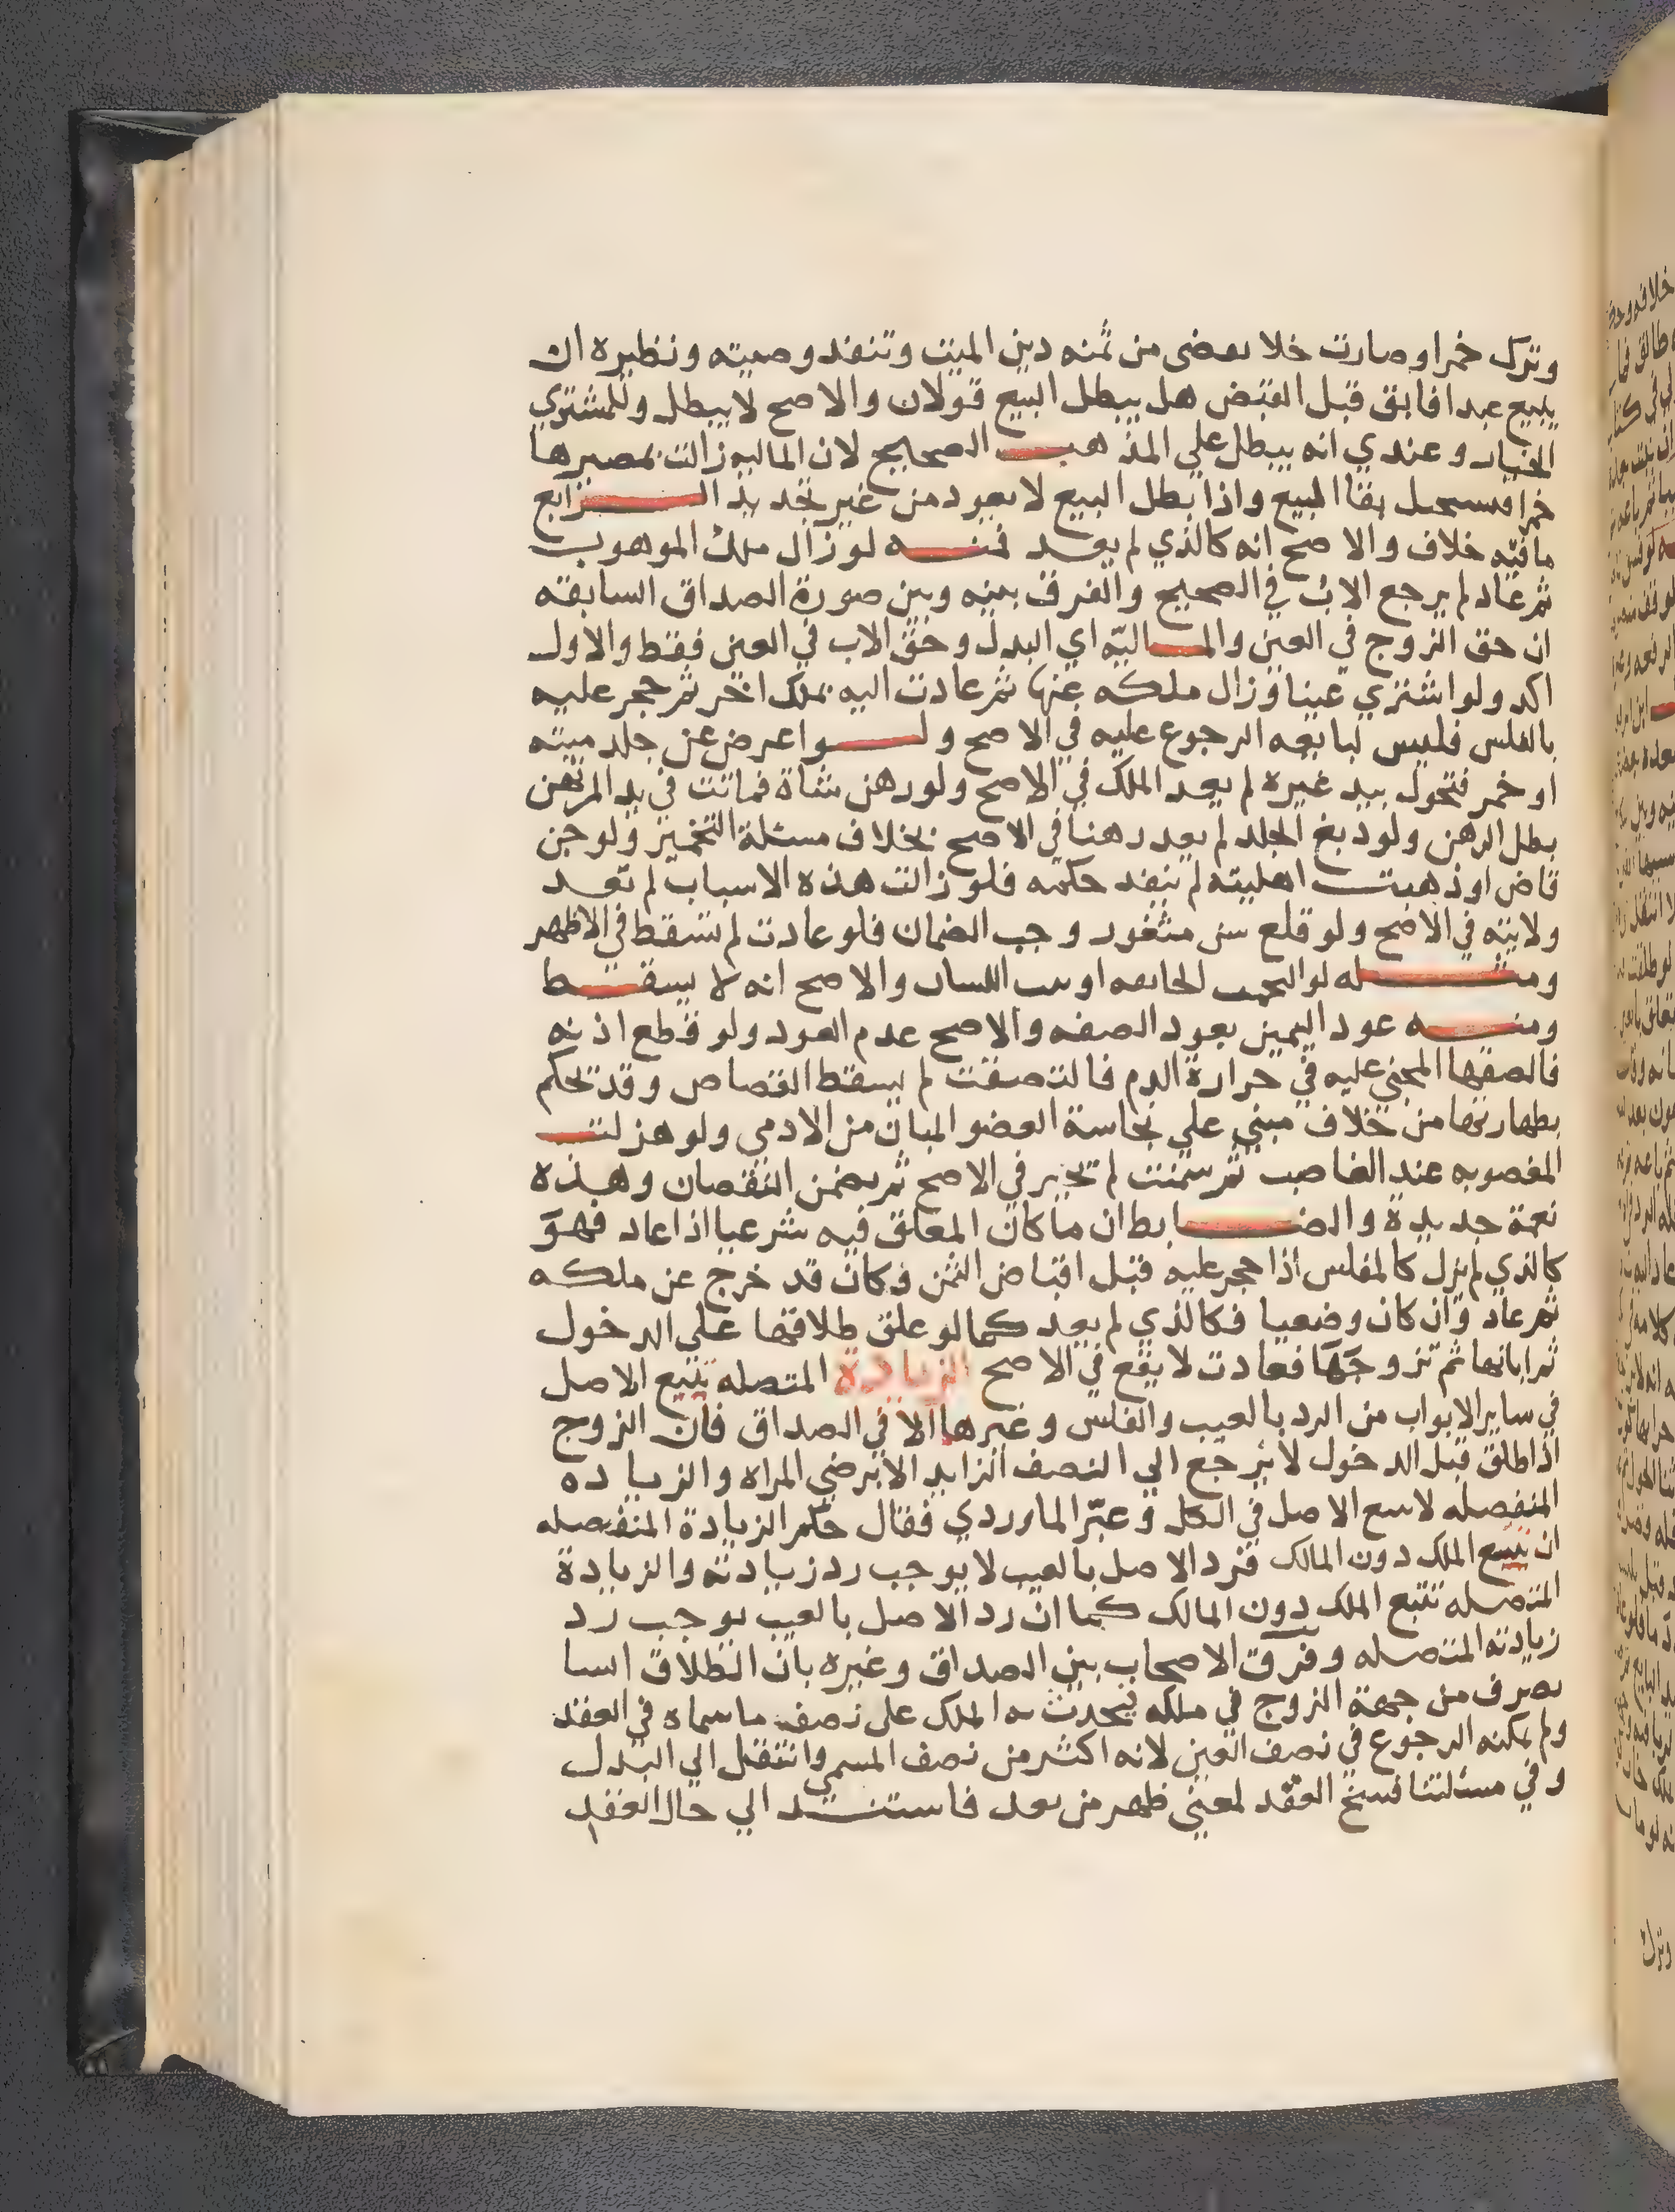 وترك خمرا وصارت خلا يعضى من ثمنه دين الميت وتنفذ وصيته ونظيره ان
يبيع عبدا فابق قبل القبض هل يبطل البيع قولان والاصح لا يبطل وللمشتري
الخيار وعندي انه يبطل علي المذهب الصحيح لان الماليه زالت بمصيرها
خمرا فيستحيل بقا المبيع واذا بطل البيع لا يعود من غير تجديد الرابع
ما فيه خلاف والاصح انه كالذي لم يعد فمنه لو زال ملك الموهوب
ثم عاد لم يرجع الاب في الصحيح والفرق بينه وبين صورة الصداق السابقه
ان حق الزوج في العين والماليّه اي البدل وحق الاب في العين فقط والاول
اكد ولو اشتري عينا وزال ملكه عنها ثم عادت اليه بملك اخر ثم حجر عليه
بالفلس فليس لبايعه الرجوع عليه في الاصح ولو اعرض عن جلد ميته
او خمر فتحول بيد غيره لم يعد الملك في الاصح ولو رهن شاة فماتت في يد المرتهن
بطل الرهن ولو دبغ الجلد لم يعد رهنا في الاصح بخلاف مسئلة التخمير ولو جن
قاض او ذهبت اهليته لم ينفد حكمه فلو زالت هذه الاسباب لم تعد
ولايته في الاصح ولو قلع سن مثغور وجب الضمان فلو عادت لم تسقط في الاظهر
ومثله لو التحمت الجايفه او نبت اللسان والاصح انه لا يسقط
ومنه عود اليمين بعود الصفه والاصح عدم العود ولو قطع اذنه
فالصقها المجني عليه في حرارة الدم فالتصقت لم يسقط القصاص وقد تحكم
بطهارتها من خلاف مبني علي نجاسة العضو المبان من الادمي ولو هزلت
المغصوبه عند الغاصب ثم سمنت لم تجبر في الاصح ثم يضمن النقصان وهذه
نعمة جديدة والضابط ان ما كان المعلق فيه شرعيا اذا عاد فهو
كالذي لم يزل كالمفلس اذا حجر عليه قبل اقباض الثمن وكان قد خرج عن ملكه
ثم عاد وان كان وضعيا فكالذي لم يعد كما لو علق طلاقها على الدخول
ثم ابانها ثم تزوجها فعادت لا يقع في الاصح الزيادة المتصله تتبع الاصل
في ساير الابواب من الرد بالعيب والفلس وغيرها الا في الصداق فان الزوج
اذا طلق قبل الدخول لا يرجع الي النصف الزايد الا برضي المراه والزياده
المنفصله لا تتبع الاصل في الكل وعبّر الماوردي فقال حكم الزيادة المنفصله
ان تتبع الملك دون المالك فرد الاصل بالعيب لا يوجب رد زيادته والزيادة
المتصله تتبع الملك دون المالك كما ان رد الاصل بالعيب يوجب رد
زيادته المتصله وفرق الاصحاب بين الصداق وغيره بان الطلاق انشا
تصرف من جهة الزوج في ملكه يحدث به الملك على نصف ما سماه في العقد
ولم يمكنه الرجوع في نصف العين لانه اكثر من نصف المسمي وانتقل الي البدل
وفي مسئلتنا فسخ العقد لمعني ظهر من بعد فاستند الي حال العقد